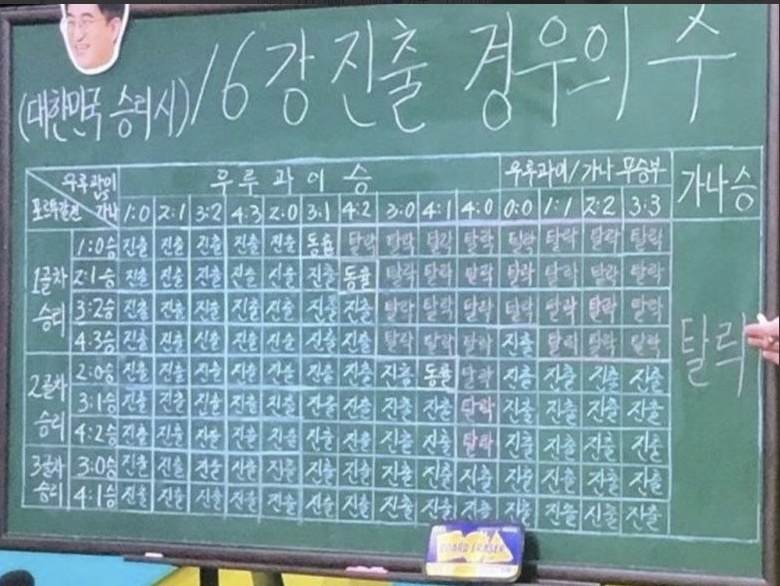 (대한민국 승리시) 16강 진출 경우의 수
우루과이 vs 가나
포르투갈전
우루과이 승
우루과이/가나 무승부
가나 승
1:0 2:1 3:2 4:3 2:0 3:1 4:2 3:0 4:1 4:0 0:0 1:1 2:2 3:3
1골차 승리
1:0승 진출 진출 진출 진출 진출 동률 탈락 탈락 탈락 탈락 탈락 탈락 탈락 탈락
2:1승 진출 진출 진출 진출 진출 진출 동률 탈락 탈락 탈락 탈락 탈락 탈락 탈락
3:2승 진출 진출 진출 진출 진출 진출 진출 탈락 탈락 탈락 탈락 탈락 탈락 탈락
4:3승 진출 진출 진출 진출 진출 진출 진출 탈락 탈락 탈락 진출 탈락 탈락 탈락
2골차 승리
2:0승 진출 진출 진출 진출 진출 진출 진출 진출 동률 탈락 진출 진출 진출 진출
3:1승 진출 진출 진출 진출 진출 진출 진출 진출 진출 탈락 진출 진출 진출 진출
4:2승 진출 진출 진출 진출 진출 진출 진출 진출 진출 탈락 진출 진출 진출 진출
3골차 승리
3:0승 진출 진출 진출 진출 진출 진출 진출 진출 진출 진출 진출 진출 진출 진출
4:1승 진출 진출 진출 진출 진출 진출 진출 진출 진출 진출 진출 진출 진출 진출
탈락
BOARD ERASER